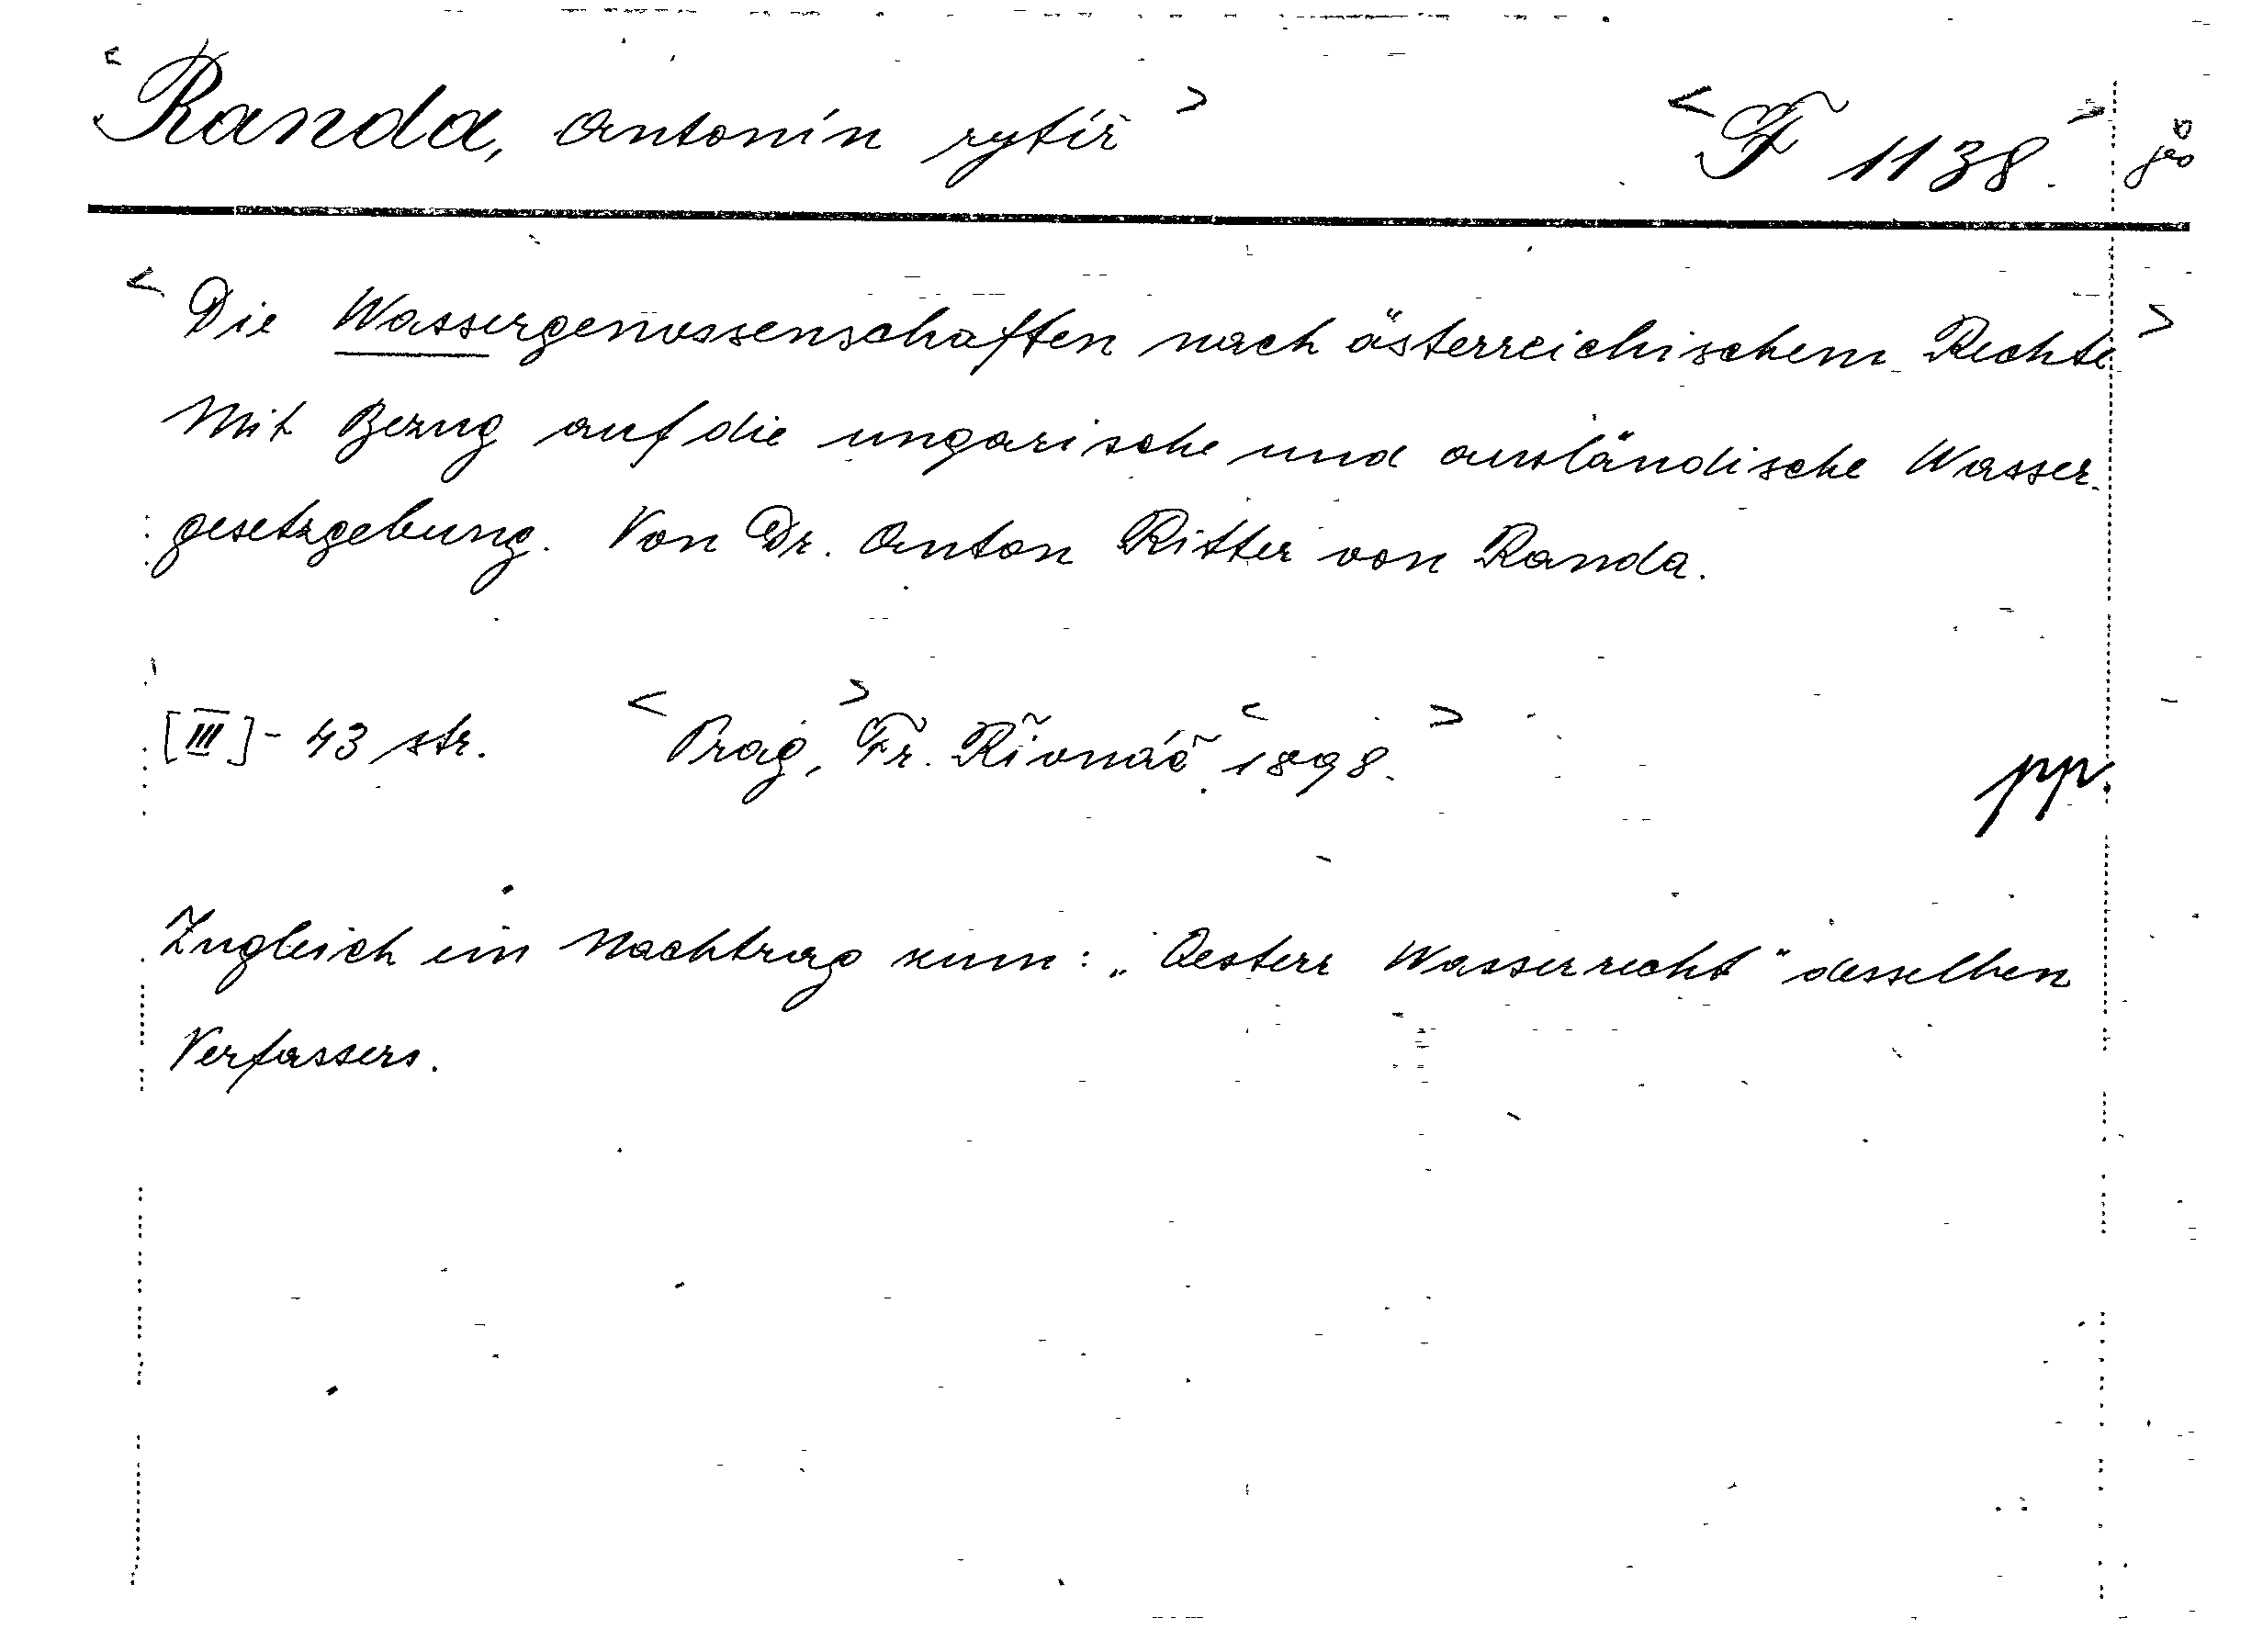 <Randa, Antonín rytíř> <F 1138.>
<Die Wassergenossenschaften nach österreichischem Rechte>
Mit Bezug auf die ungarische und ausländische Wasser-
gesetzgebung. Von Dr. Anton Ritter von Randa.
[III]- 43 str. <Prag,> Fr. Řivnáč. <1898.>
pp.
Zugleich ein Nachtrag zum: „Oesterr Wasserrecht" desselben
Verfassers.